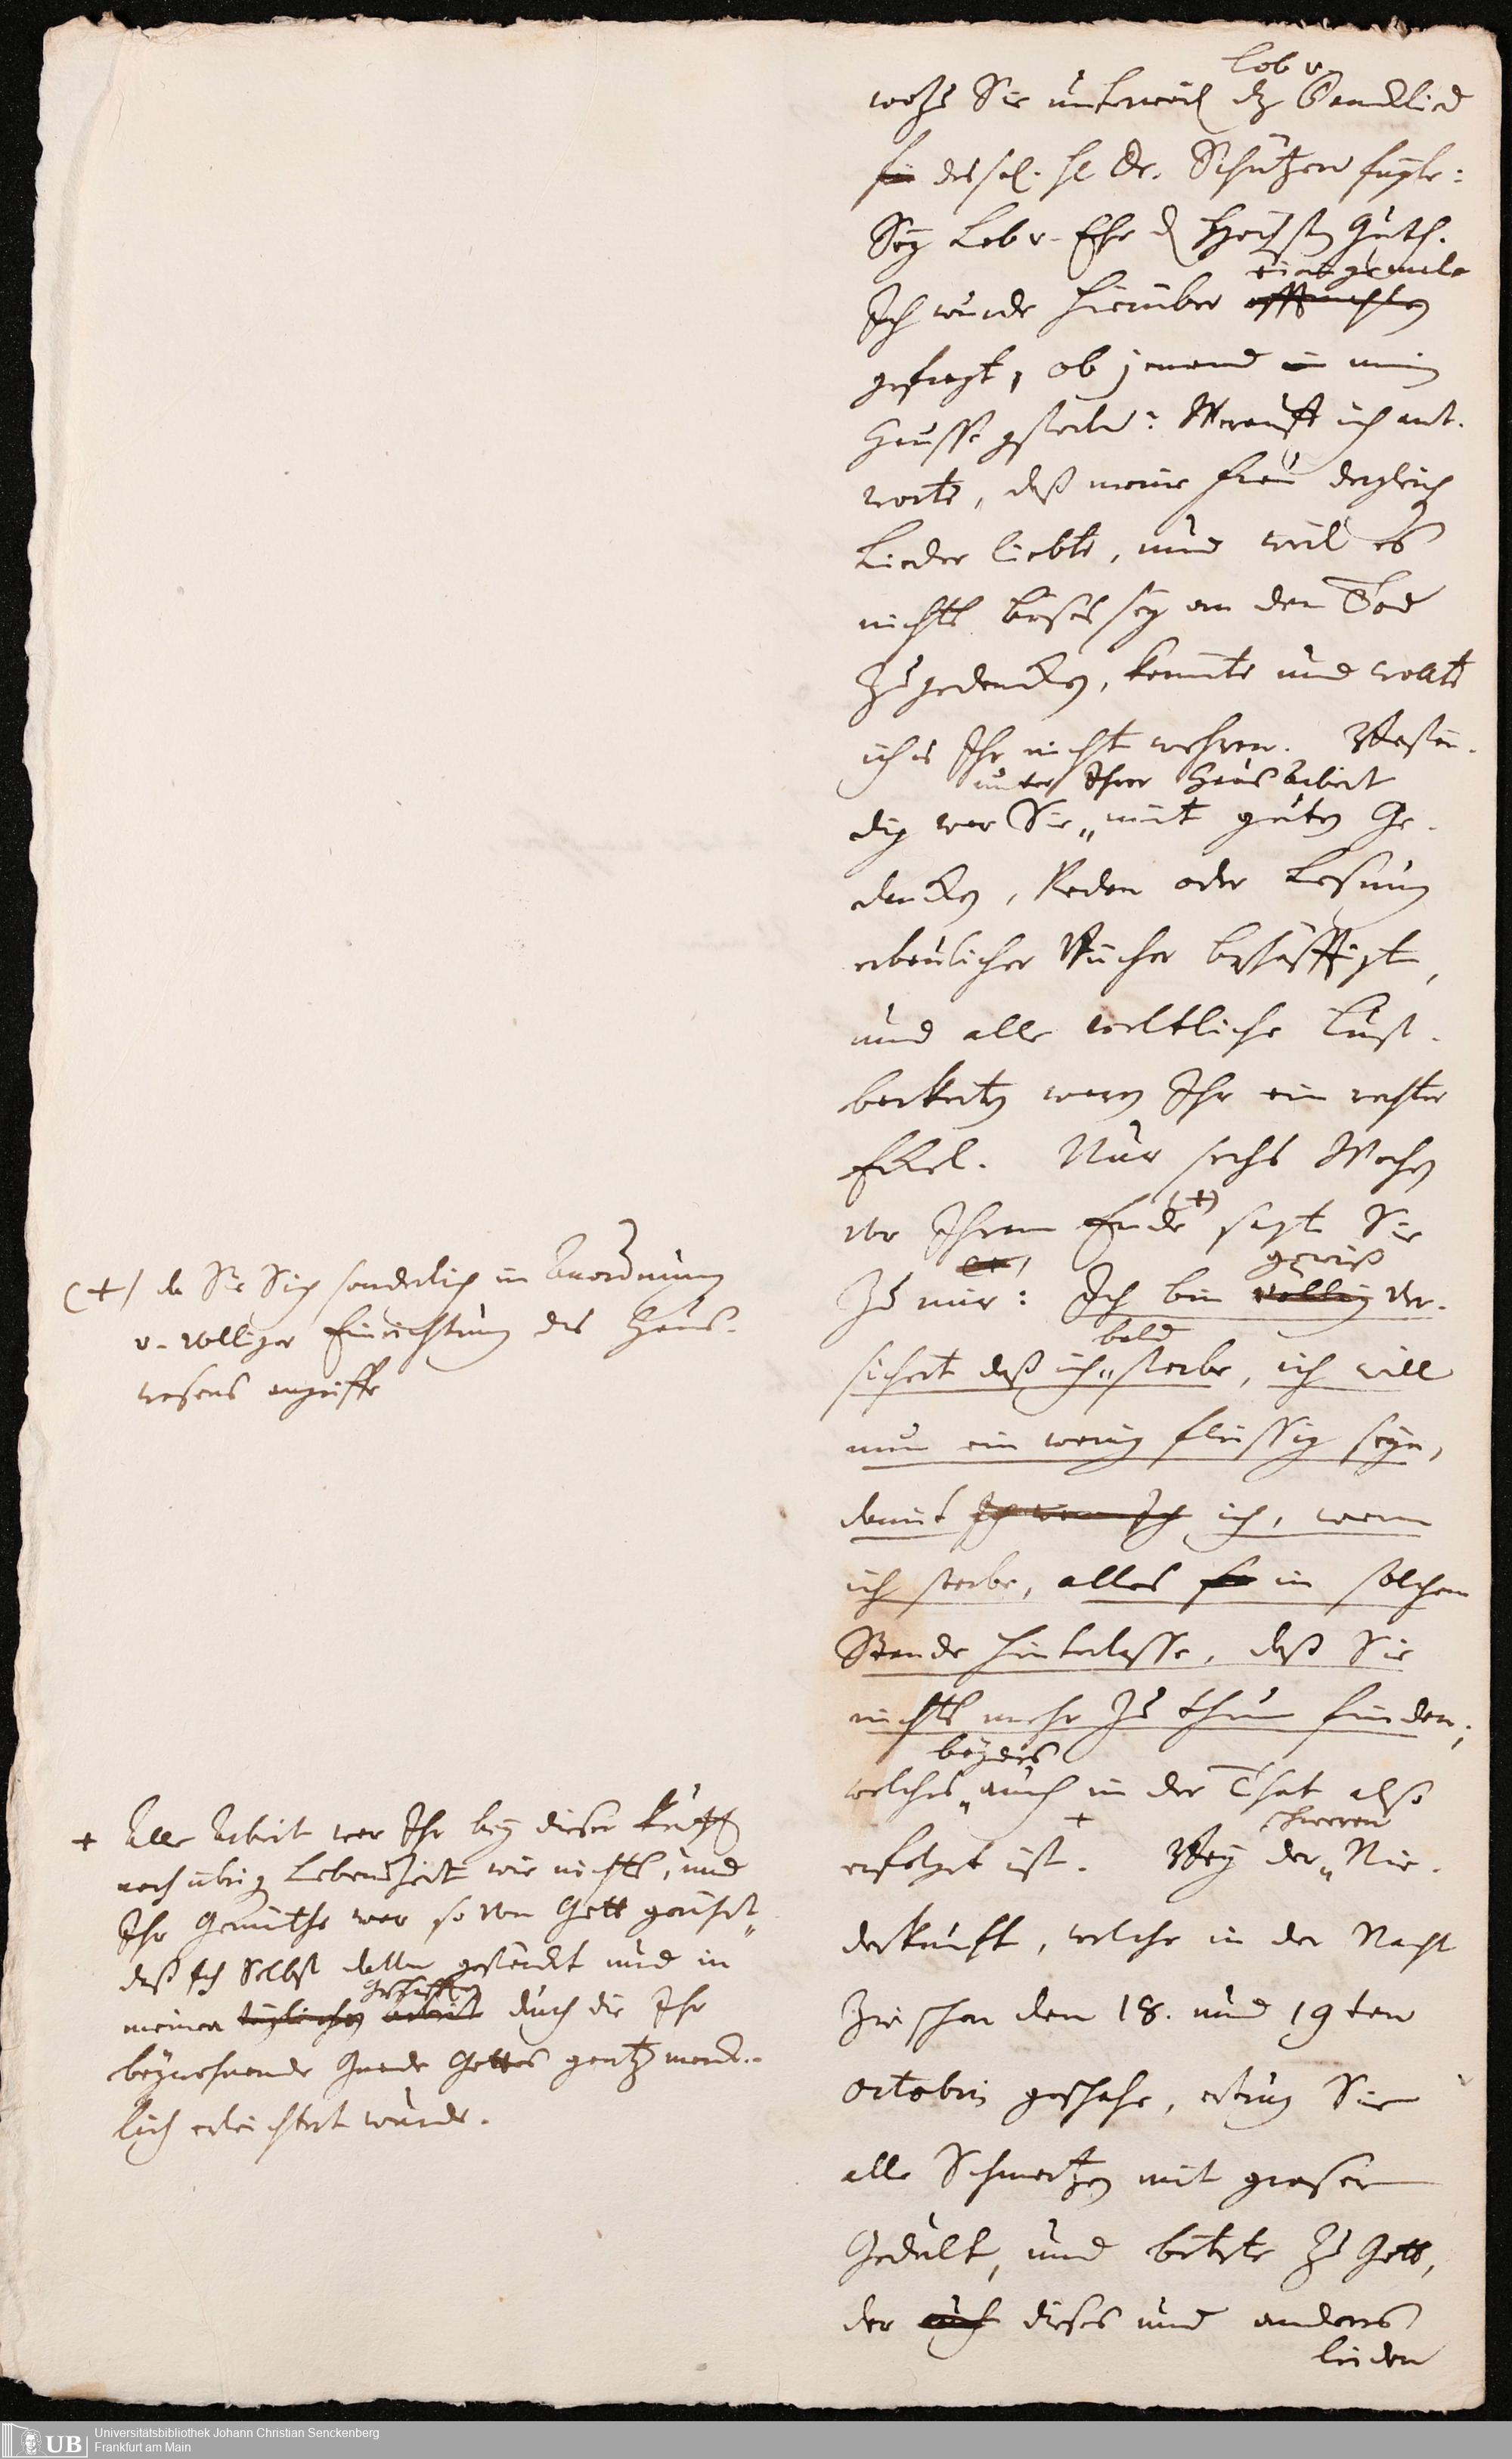 Lob v.
wozu Sie unterweil dz Dancklied
des sel. H. Dr. Schützen fügte:
Sey Lob v. Ehr d Höchsten Guth.
einst mals
Ich wurde hierüber öffters
gefragt, ob jemand in mein
Hausse gestorben? Worauff ich ant-
wortete, daß meine Frau dergleich
Lieder liebte, und weil es
nichts böses sey an den Tod
zu gedencken, konnte und wollte
ichs Ihr nicht wehren. Bestän-
unter Ihrer Haus Arbeit
dig war Sie mit guten Ge-
dancken, Reden oder Lesung
erbaulicher Bücher beschäfftigt,
und alle weltliche Lust-
barkeiten waren Ihr ein rechter
Eckel. Nur sechs Wochen
vor Ihrem Ende (+) sagte Sie
gewiß
zu mir: Ich bin völlig ver-
bald
sichert daß ich sterbe, ich will
nun ein wenig fleissig seyn,
damit ich, wenn
ich sterbe, alles in solchem
Stande hinterlasse, daß Sie
nichts mehr zu thun finden;
beydes
welches auch in der That also
schweren
erfolget ist. + Bey der Nie-
derkunfft, welche in der Nacht
zwischen den 18. und 19ten
Octobris geschahe, ertrug Sie
alle Schmertzen mit grosser
Gedult, und betete zu Gott,
der auch dieses und anderes
leiden
(+) da Sie Sich sonderlich in Anordnung
v. völliger Einrichtung des Haus-
wesens angriffe
+ Alle Arbeit war Ihr bey dieser kurtz
noch übrig Lebenszeit wie nichts, und
Ihr Gemüthe war so von Gott gerühret
daß Ich Selbst dallen gestärckt und in
Geschäfften
meinen täglichen Arbeit durch die Ihr
beywohnende Gnade Gottes gantz merck-
lich erleichtert wurde.
UB
Universitätsbibliothek Johann Christian Senckenberg
Frankfurt am Main